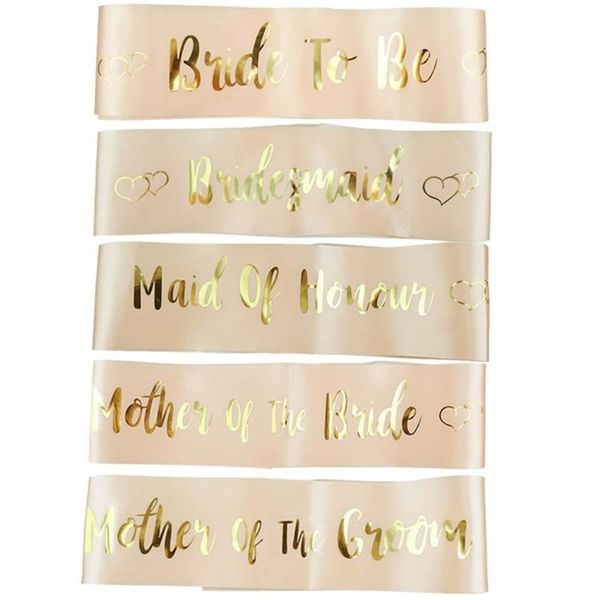 Bride To Be
Bridesmaid
Maid Of Honour
Mother Of The Bride
Mother Of The Groom